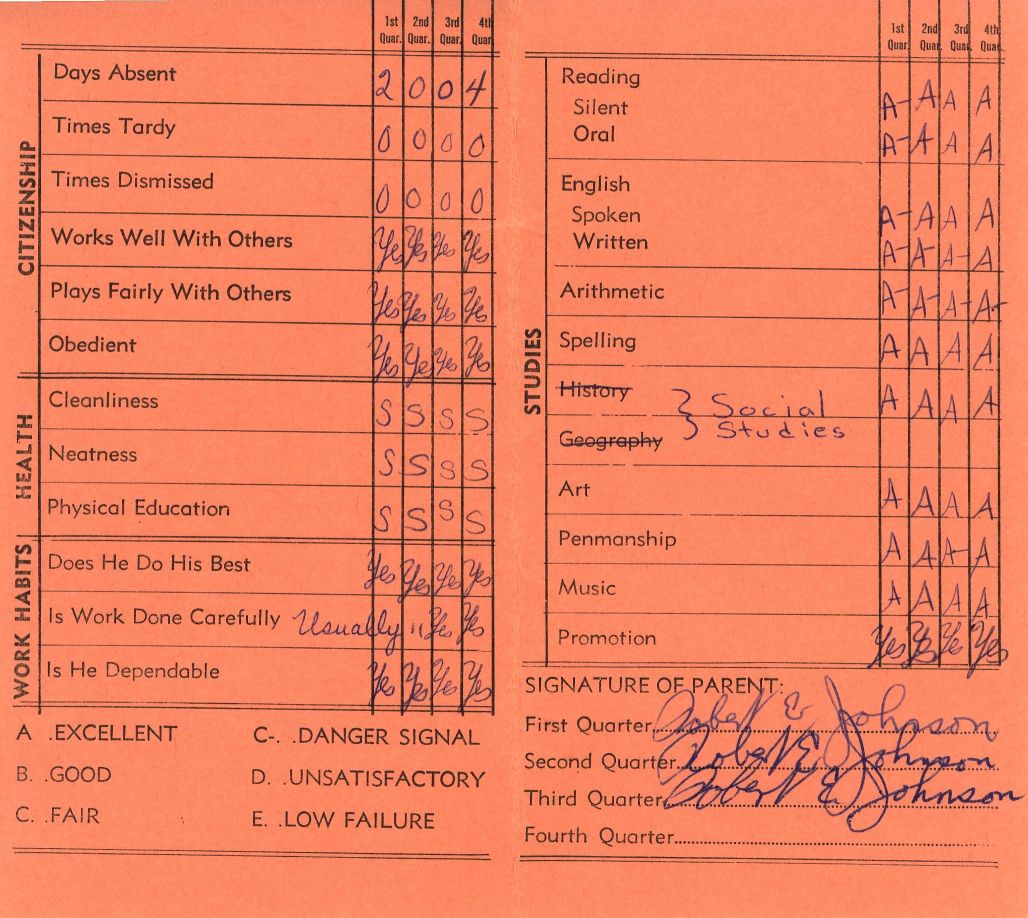 1st 2nd 3rd 4th
Quar. Quar. Quar. Quar.
CITIZENSHIP
Days Absent 2 0 0 4
Times Tardy 0 0 0 0
Times Dismissed 0 0 0 0
Works Well With Others Yes Yes Yes Yes
Plays Fairly With Others Yes Yes Yes Yes
Obedient Yes Yes Yes Yes
HEALTH
Cleanliness S S S S
Neatness S S S S
Physical Education S S S S
WORK HABITS
Does He Do His Best Yes Yes Yes Yes
Is Work Done Carefully Usually " Yes Yes
Is He Dependable Yes Yes Yes Yes
A .EXCELLENT C-. .DANGER SIGNAL
B. .GOOD D. .UNSATISFACTORY
C. .FAIR E. .LOW FAILURE
1st 2nd 3rd 4th
Quar. Quar. Quar. Quar.
STUDIES
Reading
Silent A- A A A
Oral A- A- A A
English
Spoken A- A A A
Written A- A- A- A
Arithmetic A- A- A- A-
Spelling A A A A
History } Social A A A A
Geography } Studies
Art A A A A
Penmanship A A A- A
Music A A A A
Promotion Yes Yes Yes Yes
SIGNATURE OF PARENT:
First Quarter Robert E. Johnson
Second Quarter Robert E. Johnson
Third Quarter Robert E. Johnson
Fourth Quarter